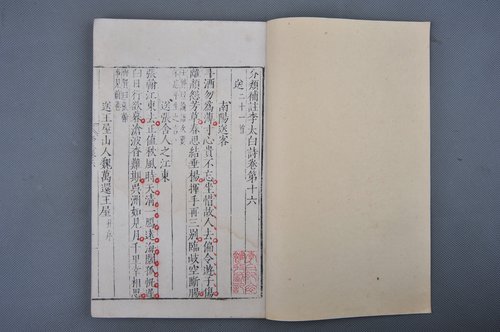 分類補註李太白詩卷第十六
送二十一首
南陽送客
斗酒勿爲薄寸心貴不忘坐惜故人去偏令遊子傷
離顏怨芳草春思結垂楊揮手再三別臨岐空斷腸
送張舍人之江東
張翰江東去正值秋風時天清一鴈遠海闊孤帆遲
白日行欲暮滄波杳難期吳洲如見月千里幸相思
送王屋山人魏萬還王屋